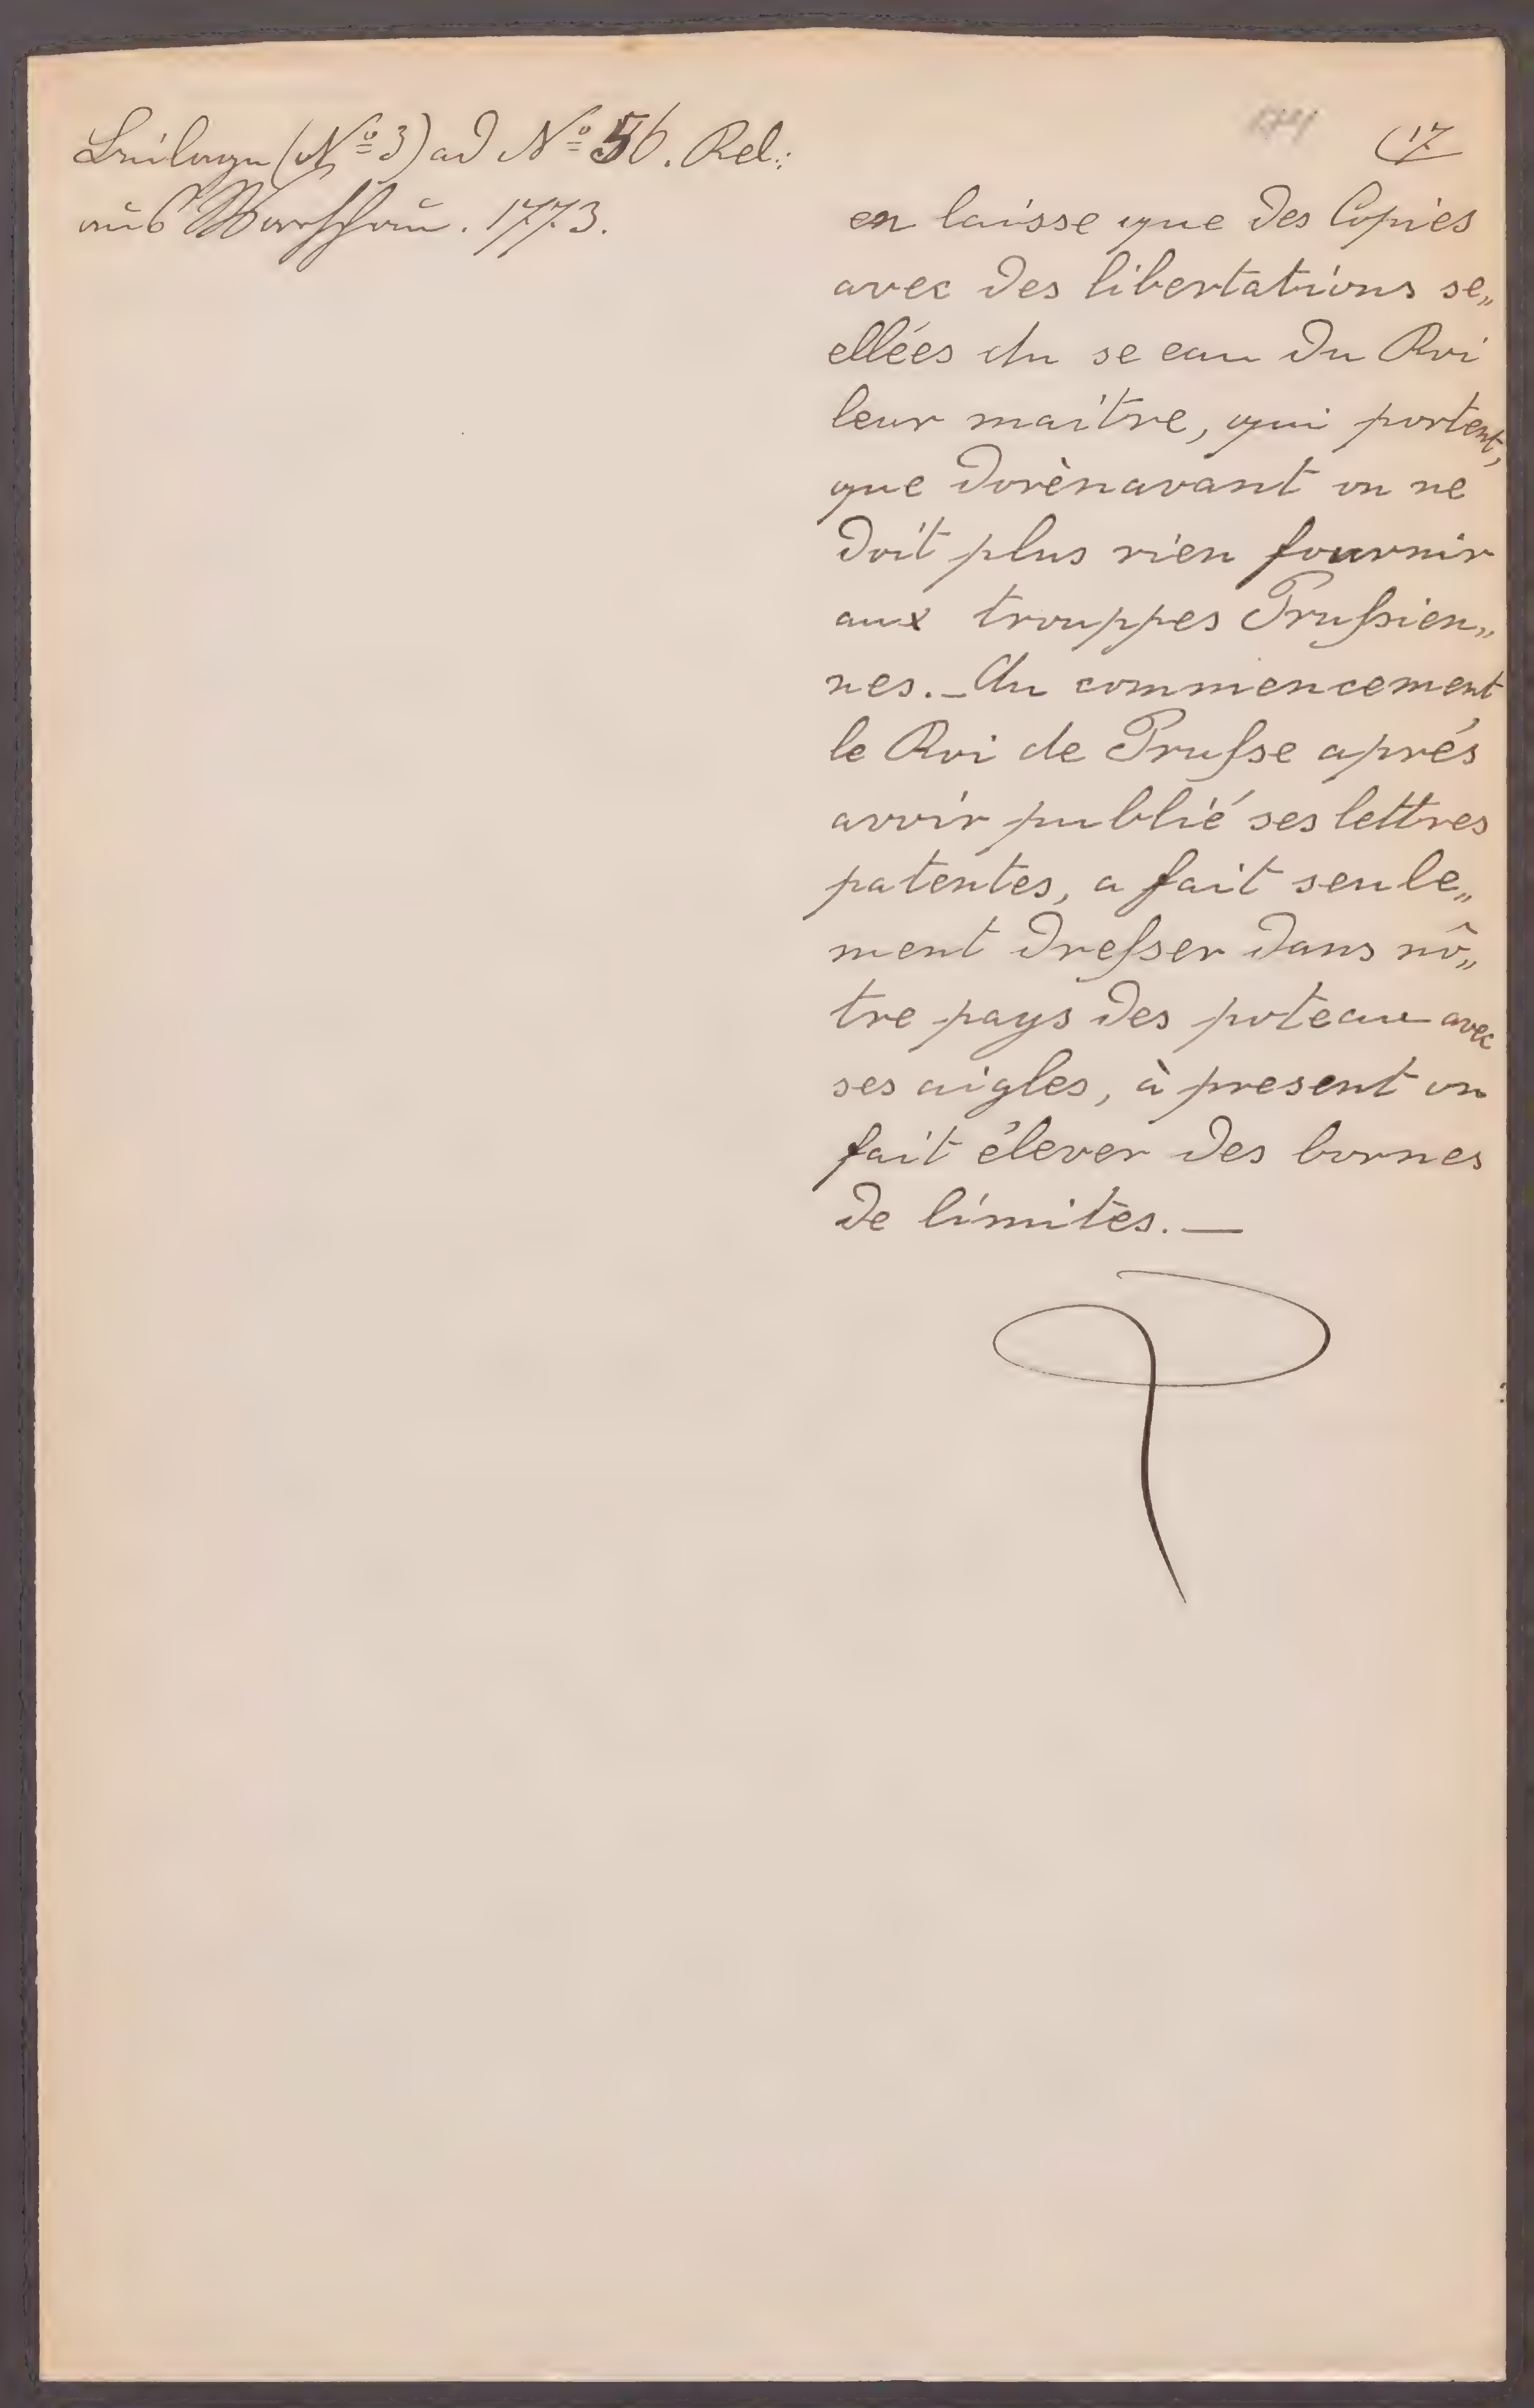 Beilage (Nº 3) ad Nº 56. Rel.:
aus Warschau. 1773.
17
en laisse que des Copies
avec des libertations se„
ellées du seeau du Roi
leur maître, qui portent,
que dorènavant on ne
doit plus rien fournir
aux trouppes Prußien„
nes. _ Au commencement
le Roi de Pruße aprés
avoir publié ses lettres
patentes, a fait seule„
ment dreßer dans nô„
tre pays des poteau avec
ses aigles, à present on
fait élever des bornes
de limites. —